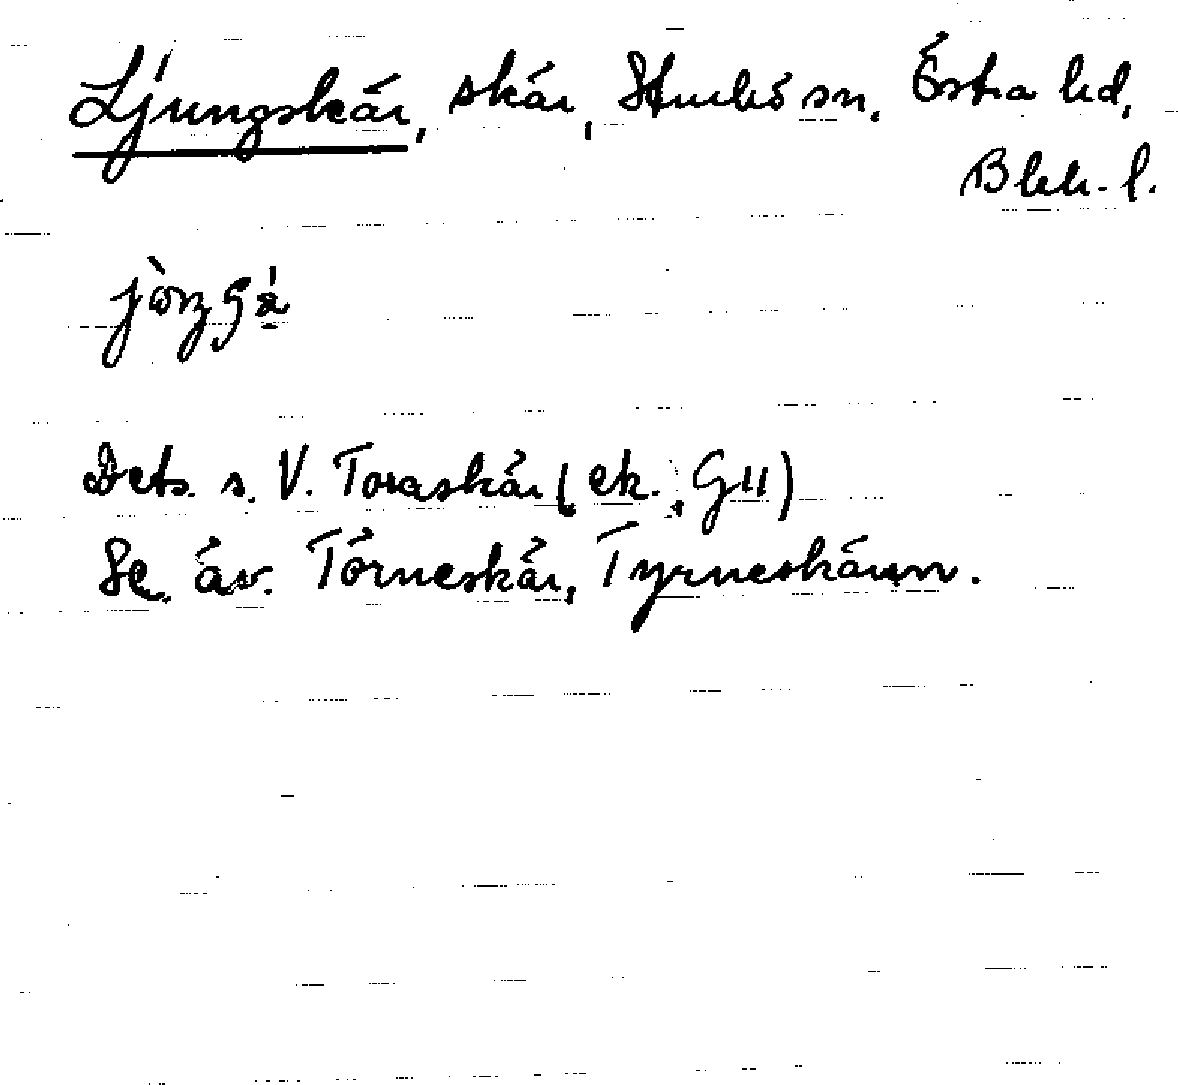 Ljungskär, skär, Sturkö sn. Östra hd,
Blek. l.
Dets. s. V. Toraskär (ek., GII)
Se äv. Törneskär, Tyrneskären.